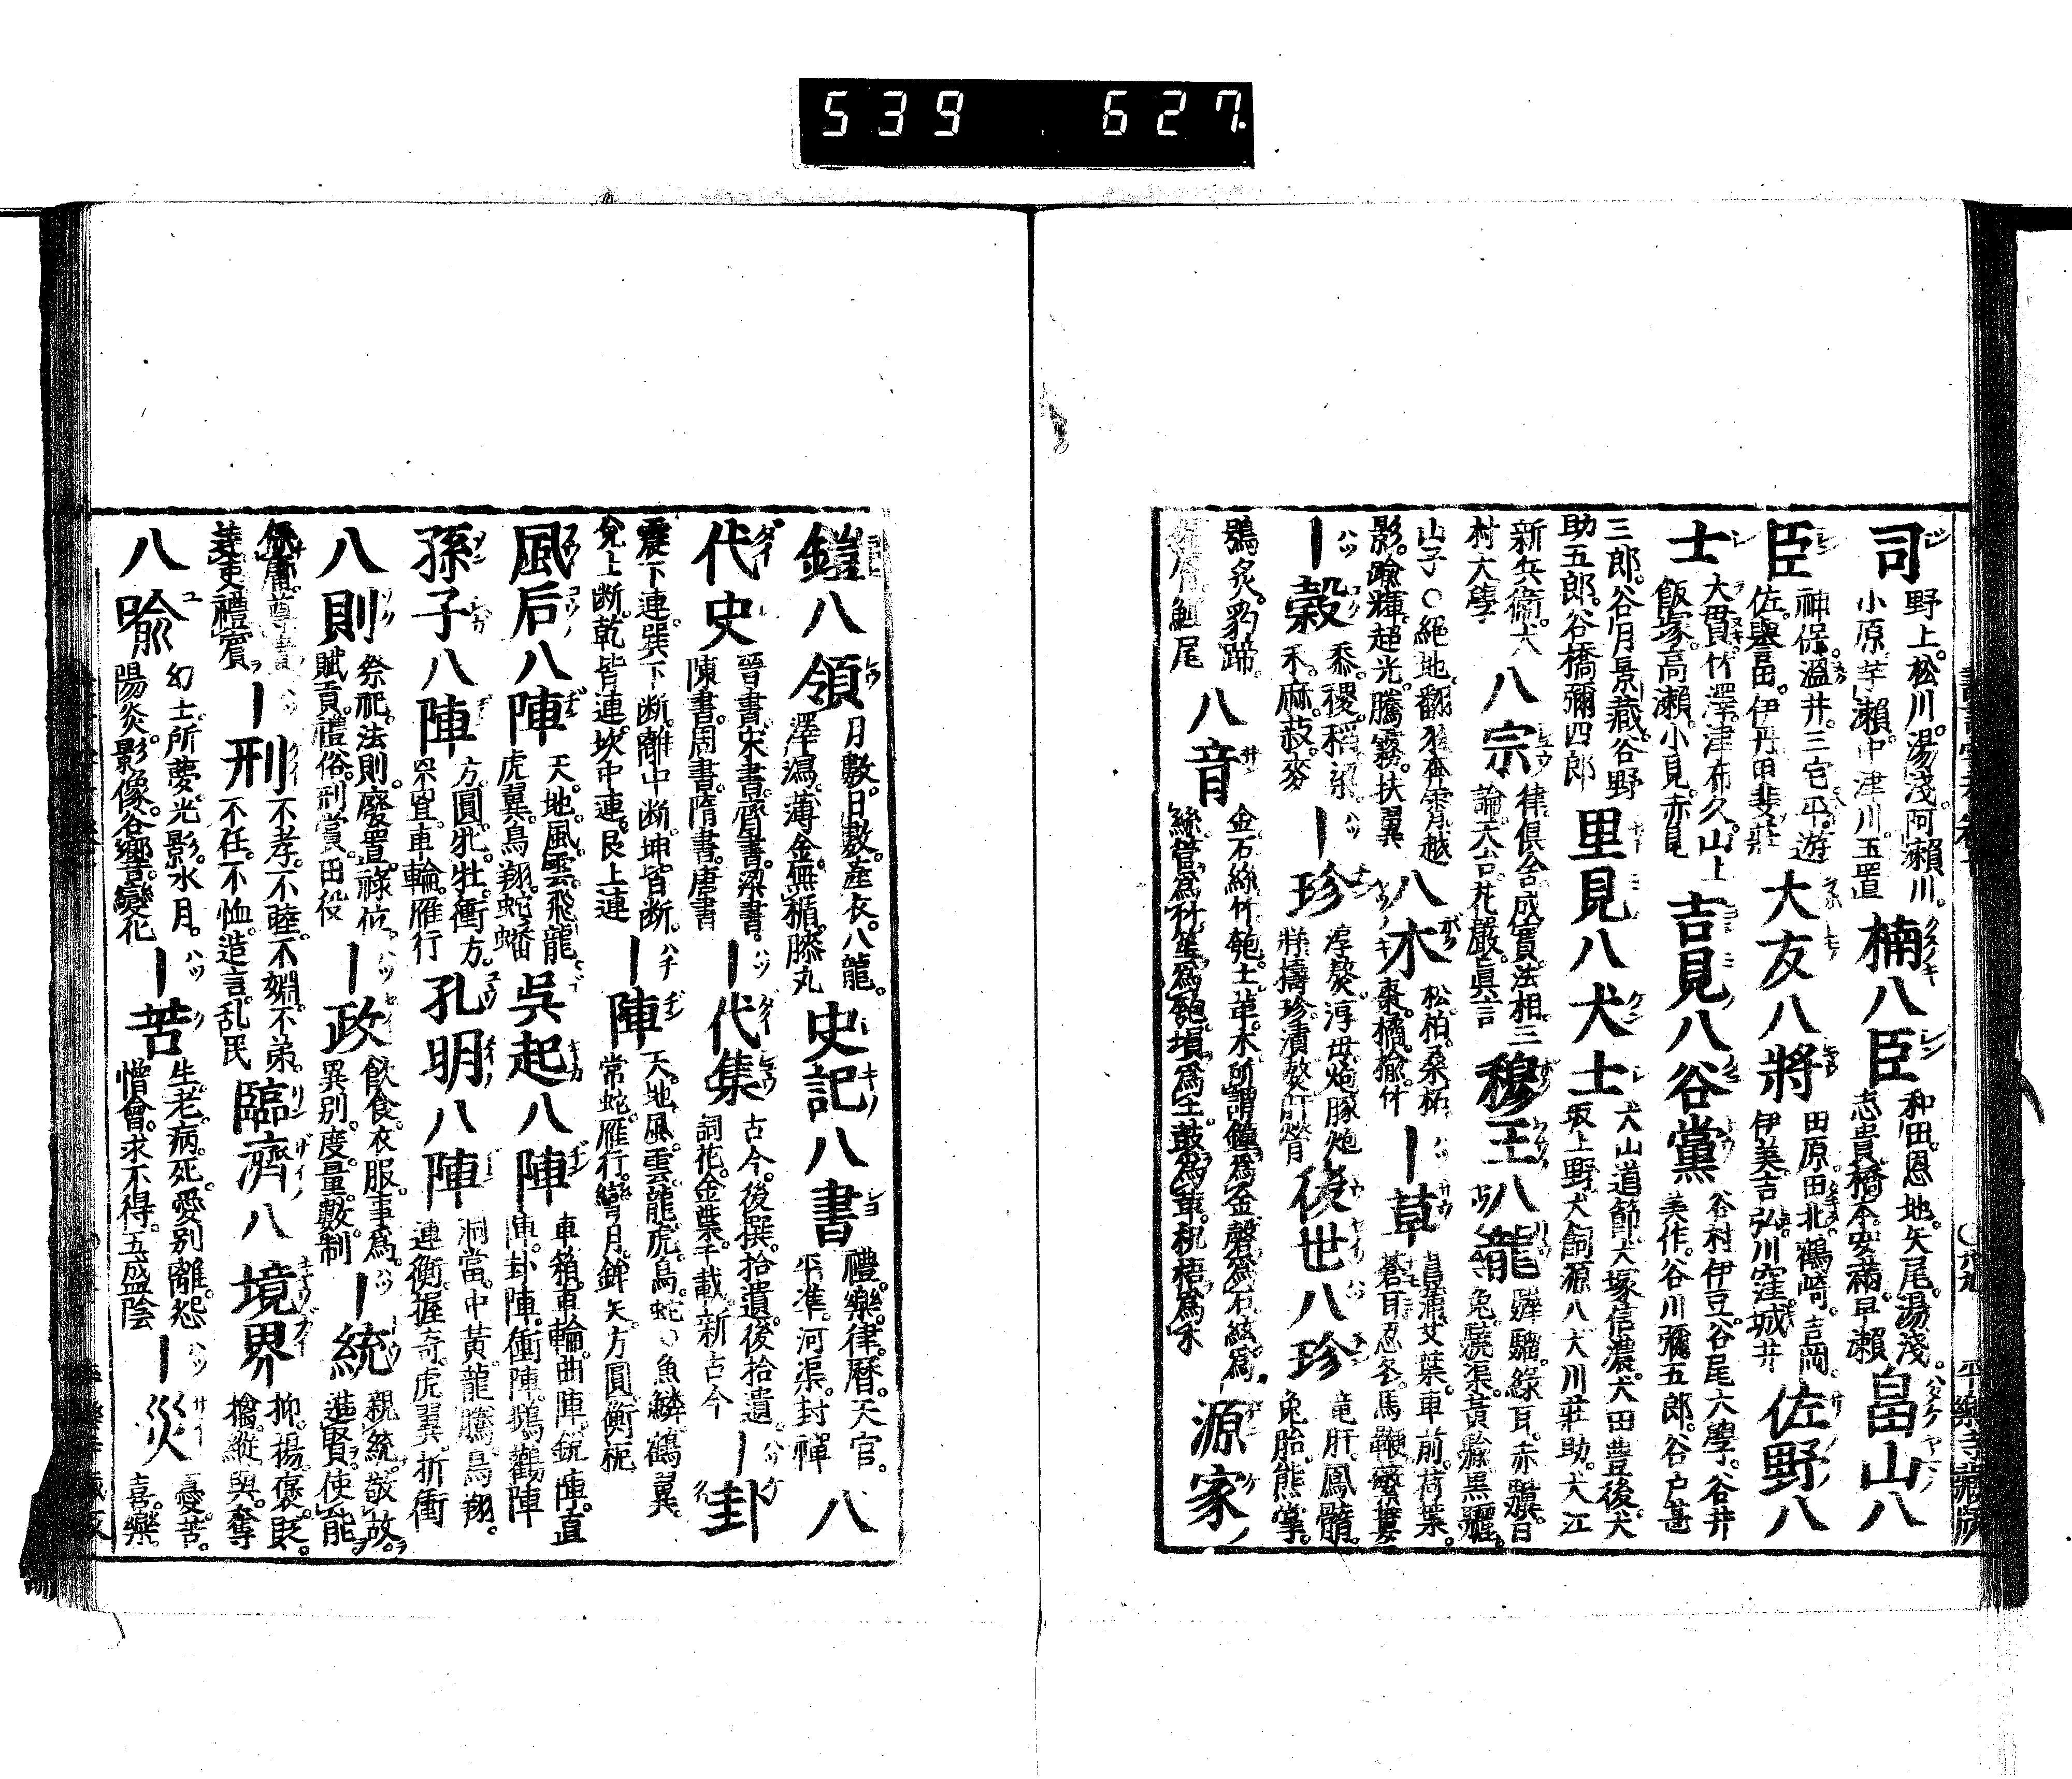 539 627
司 野上。松川。湯淺。阿瀨川。
小原。芋瀨。中津川。玉置
楠八臣 和田。恩地。矢尾。湯淺。
志貴。橋本。安滿。早瀨
畠山八
臣 神保。溫井。三宅。平。遊
佐。譽田。伊丹。甲斐。莊
大友八將 田原。田北。鶴崎。吉岡。
伊美。吉弘。川窪。城井
佐野八
士 大貫。竹澤。津布久。山上
飯塚。高瀨。小見。赤見
吉見八谷黨 谷村伊豆。谷尾大學。谷井
美作。谷川彌五郎。谷戸甚
三郎。谷月景藏。谷野
助五郎。谷橋彌四郎
里見八犬士 犬山道節。犬塚信濃。犬田豊後。犬
坂上野。犬飼源八。犬川莊助。犬江
新兵衞。犬
村大學
八宗 律。倶舎。成實。法相。三
論。天台。花嚴。眞言
穆王八龍 驊騮。綠耳。赤驥。白
山子○絕地。翻羽。奔霄。越
影。踰輝。超光。騰霧。扶翼
八木 松。柏。桑。柘
棗。橘。楡。竹
｜草 菖蒲。艾葉。車前。荷葉。
蒼耳。忍冬。馬鞭。蘩蔞
｜穀 黍。稷。稻。粱
禾。麻。菽。麥
｜珍 淳熬。淳毋。炮豚。炮
牂。擣珍。漬。熬。肝膋
後世八珍 竜肝。鳳髓。
兔胎。熊掌。
鴞炙。豹蹄。
鯉尾
八音 金石絲竹。匏土革木。所謂鐘爲金。磬爲石。絃爲
絲。管爲竹。笙爲匏。塤爲土。鼓爲革。柷梧爲木
源家ノ
鎧八領 月數。日數。產衣。八龍。
澤瀉。薄金。無楯。膝丸
史記八書 禮。樂。律。曆。天官。
平準。河渠。封禪
八
代史 晉書。宋書。齊書。梁書。
陳書。周書。隋書。唐書
｜代集 古今。後撰。拾遺。後拾遺
詞花。金葉。千載。新古今
｜卦
震下連。巽下断。離中断。坤皆断。
兌上断。乾皆連。坎中連。艮上連
｜陣 天。地。風。雲。龍。虎。鳥。蛇○魚鱗。鶴翼。
常蛇。雁行。彎月。鉾矢。方圓。衡枙
風后八陣 天。地。風。雲。飛龍。
虎翼。鳥翔。蛇蟠
吳起八陣 車箱。車輪。曲陣。銳陣。直
陣。卦陣。衝陣。鵝鸛陣
孫子八陣 方。圓。牝。牡。衝方。
罘罝。車輪。雁行
孔明八陣 洞當。中黃。龍騰。鳥翔。
連衡。握奇。虎翼。折衝
八則 祭祀。法則。廢置。祿位。
賦貢。禮俗。刑賞。田役
｜政 飮食。衣服。事爲。
異別。度。量。數。制
｜統 親親。敬故。
進賢。使能
保庸。尊貴
達吏。禮賓
｜刑 不孝。不睦。不婣。不弟。
不任。不恤。造言。乱民
臨濟八境界 抑。揚。褒。貶。
擒。縱。與。奪
八喩 幻士。所夢。光影。水月。
陽炎。影像。谷響。變化
｜苦 生。老。病。死。愛別離。怨
憎會。求不得。五盛陰
｜災 憂。苦。
喜。樂。